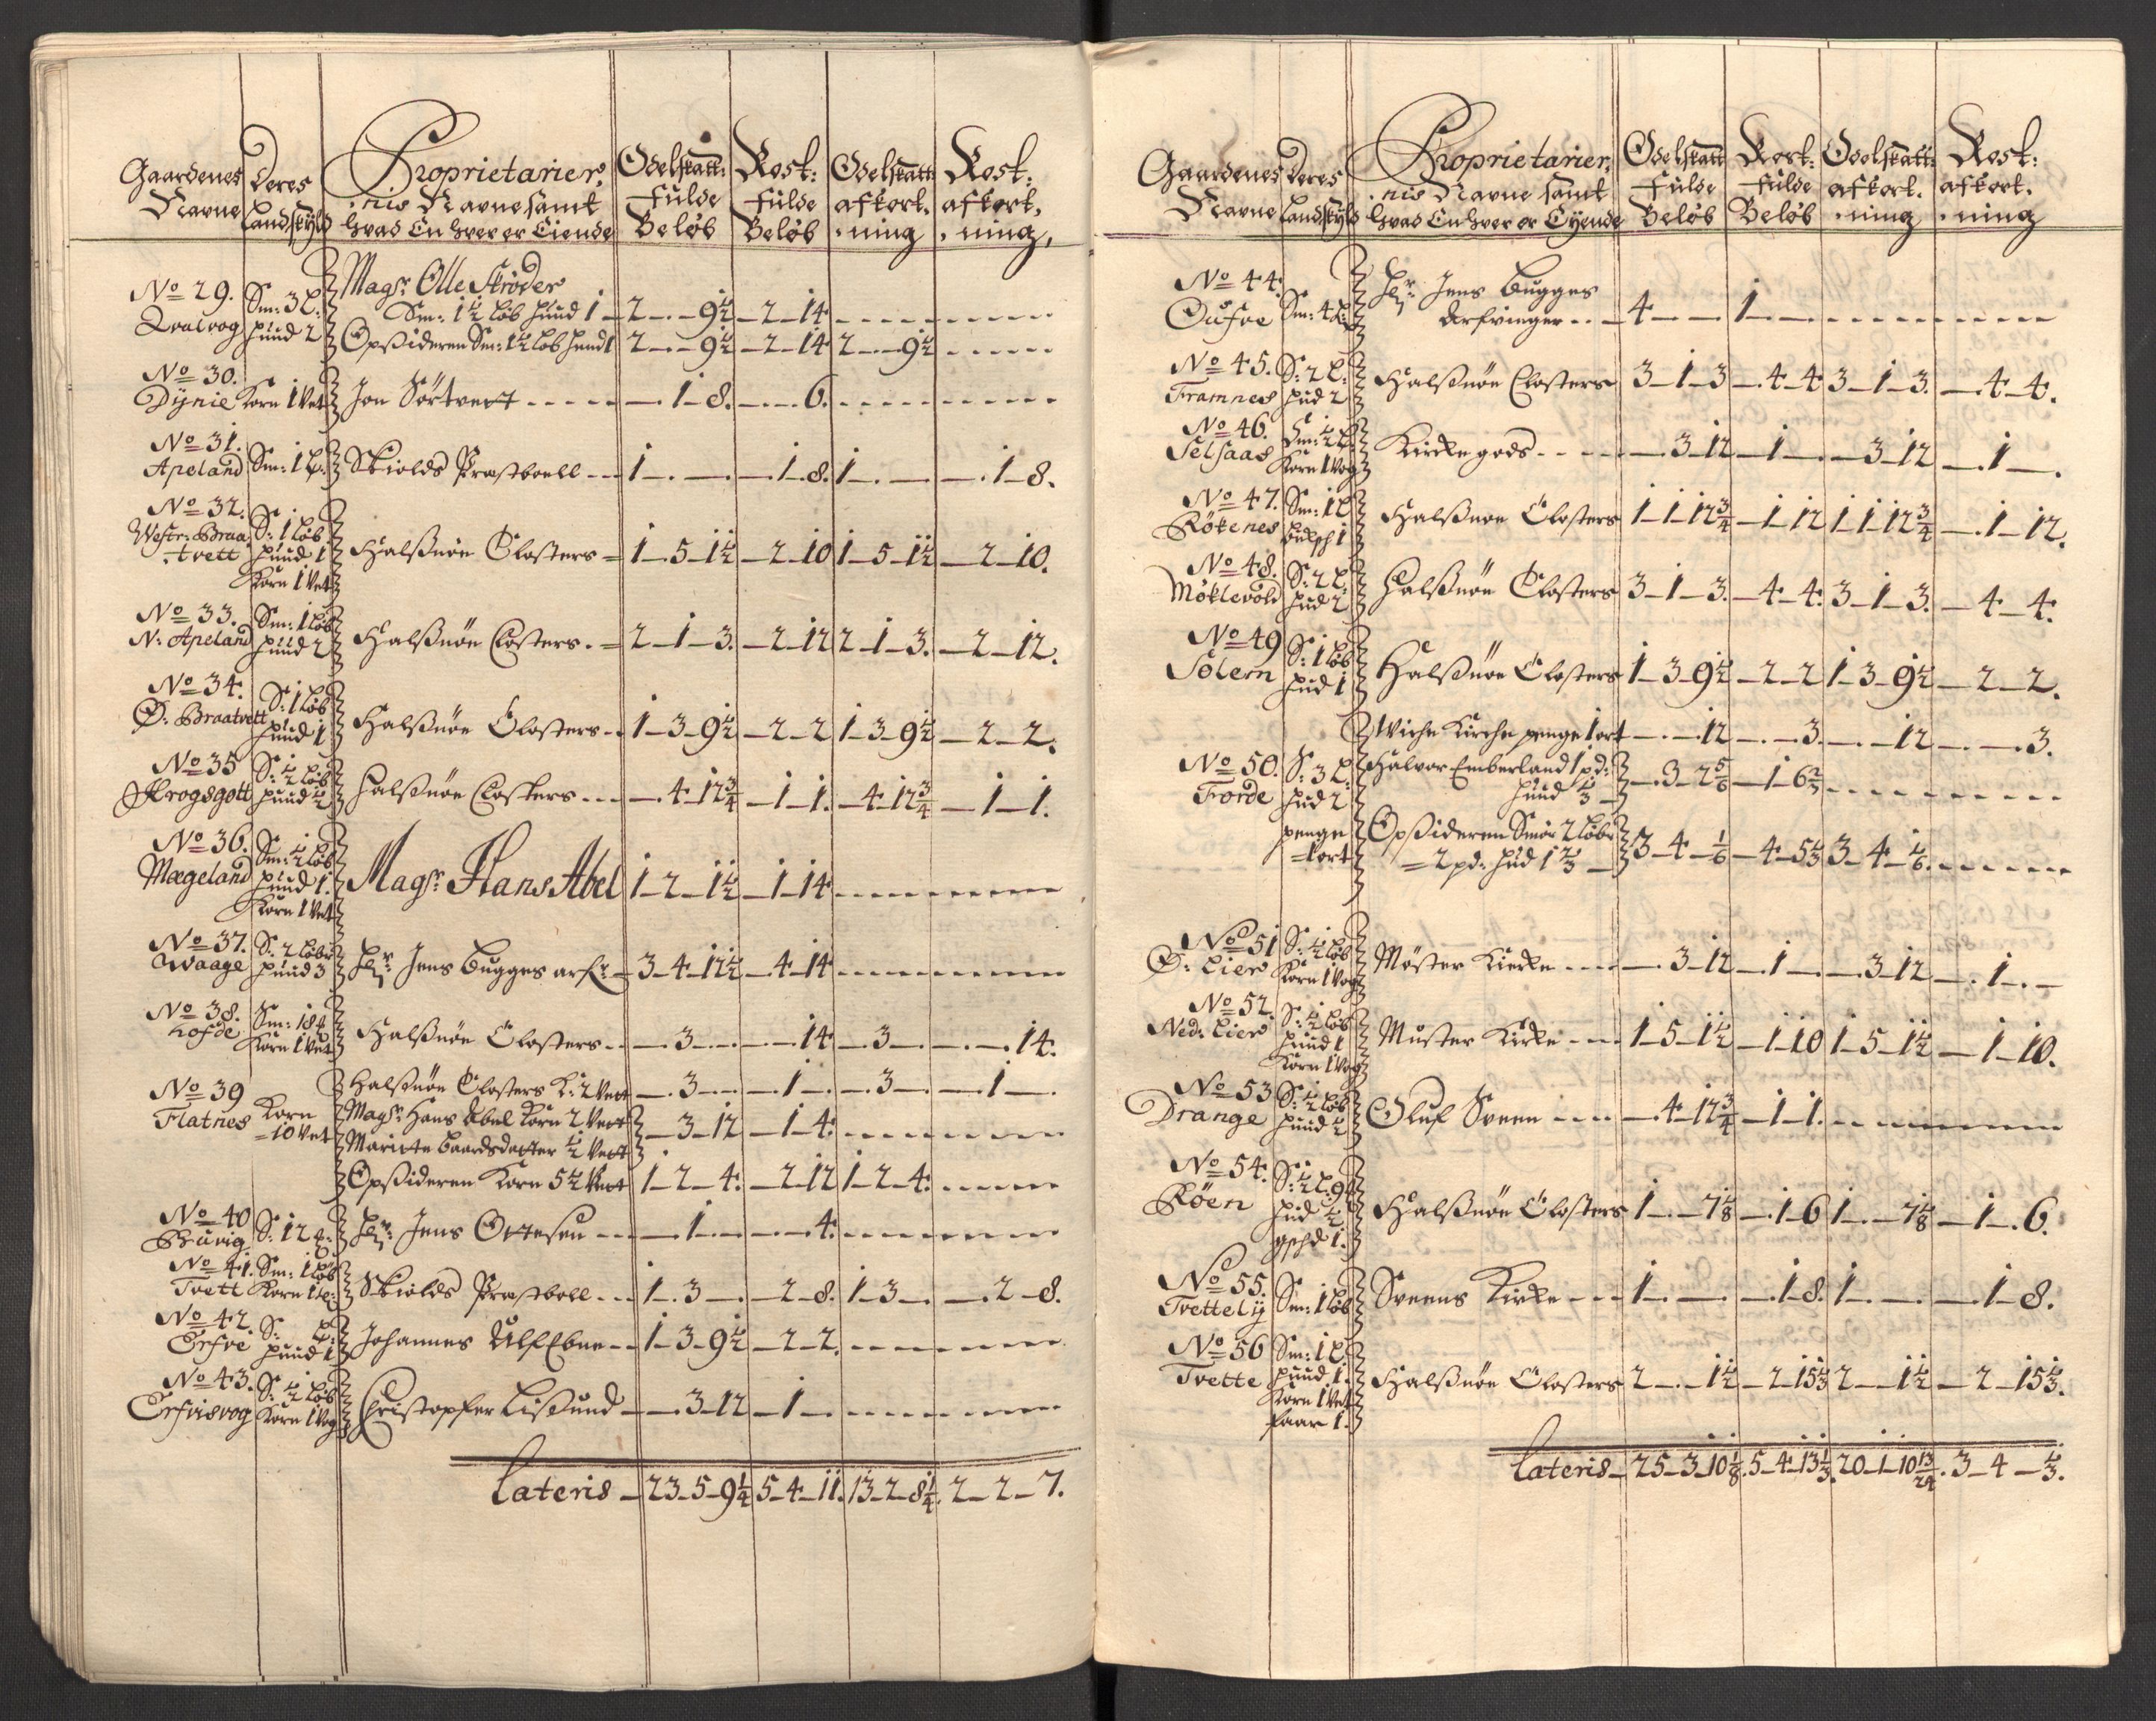 Gaardenes Navne | Deres Landskyld | Proprietariernis Navne samt hvad Enhver er Eiende | Odelskatt: fulde Beløb | Rost: fulde Beløb | Odelskatt: afkortning | Rost: afkortning
No 29. Qvalvog | Sm: 3 L: hund 2 | Magr: Olle Skrøder
Sm: 1½ løb hund 1 | 2 — - 9½ | 2 - 14
Opsideren Sm: 1½ løb hund 1 | 2 — - 9½ | 2 - 14 | 2 — - 9½
No 30. Dynie | Korn 1 Vet | Jon Sörtvert | 1 - 8. | 6.
No 31. Apeland | Sm: 1 L: | Skiolds Præstboell | 1 — | 1 - 8. | 1 — | 1 - 8.
No 32. Westr: Braatvett | S: 1 Løb hund 1 Korn 1 Vet | Halsnöe Closters | 1 - 5 - 1½ | 2 - 10 | 1 - 5 - 1½ | 2 - 10.
No 33. N: Apeland | Sm: 1 Løb hund 2 | Halsnöe Closters | 2 - 1 - 3. | 2 - 12 | 2 - 1 - 3. | 2 - 12.
No 34. Ö: Braatvett | S: 1 Løb hund 1 | Halsnöe Closters | 1 - 3 - 9½ | 2 - 2 | 1 - 3 - 9½ | 2 - 2.
No 35 Krogsgott | S: ½ Løb hund ½ | Halsnöe Closters | 4 - 12¾ | 1 - 1. | 4 - 12¾ | 1 - 1.
No 36. Mægeland | Sm: ½ Løb hund 1. Korn 1 Vet | Magr: Hans Abel | 1 - 2 - 1½ | 1 - 14
No 37. Waage | S: 2 Løber hund 3 | Hr: Jens Bugges arfr: | 3 - 4 - 12½ | 4 - 14
No 38. Hofde | Sm: 18 # Korn 1 Vet | Halsnöe Closters | 3 — | 14 | 3 — | 14.
No 39 Flatnes | Korn 10 Vet | Halsnöe Closters K: 2 Vett | 3 — | 1 — | 3 — | 1 —
Magr: Hans Abel Korn 2 Vett
Maritte Baardsdatter ½ Vett | 3 - 12 | 1 - 4.
Opsideren Korn 5½ Vett | 1 - 2 - 4. | 2 - 12 | 1 - 2 - 4.
No 40 | S: 12 #: | Hr: Jens Ottesen | 1 — | 4.
No 41. Tvett | Sm: 1 Løb Korn | Skiolds Præstboll | 1 - 3 — | 2 - 8. | 1 - 3 — | 2 - 8.
No 42. Erfve | S: L: hund 1 | Johannes Ulf Ebne | 1 - 3 - 9½ | 2 - 2.
No 43. Erfvisvog | S: ½ Løb Korn 1 Vog | Christopher Lisund | 3 - 12 | 1 —
Lateris — 23 - 5 - 9¼ | 5 - 4 - 11. | 13 - 2 - 8¼ | 2 - 2 - 7.
Gaardenes Navne | Deres Landskyld | Proprietariernis Navne samt hvad Enhver er Eyende | Odelskatt fulde Beløb | Rost: fulde Beløb | Odelskatt: afkortning | Rost: afkortning
No 44. Oufve | Sm: 4 L: | Hr: Jens Bugges
Arfvinger | 4 — | 1 —
No 45. Framnes | S: 2 L: hud 2 | Halsnöe Closters | 3 - 1 - 3 | 4 - 4 | 3 - 1 - 3. | 4 - 4.
No 46. Selsaas | Sm: ½ L: Korn 1 Vog | Kirkegods | 3 - 12 | 1 — | 3 - 12 | 1 —
No 47. Rökenes | Sm: 1 L | Halsnöe Closters | 1 - 1 - 12¾ | 1 - 12 | 1 - 1 - 12¾ | 1 - 12.
No 48. Möklevold | S: 2 L: hud 2 | Halsnöe Closters | 3 - 1 - 3. | 4 - 4. | 3 - 1 - 3. | 4 - 4.
No 49 Solem | S: 1 Løb hud 1 | Halsnöe Closters | 1 - 3 - 9½ | 2 - 2 | 1 - 3 - 9½ | 2 - 2.
Wichs Kirche penge 1 ort | 12 | 3. | 12 | 3.
No 50. Forde | S: 3 L: hud 2 penge 1 ort | Halvor Emberland 1 pd:
hund ⅓ | 3 - 2⅚ | 1 - 6⅔
Opsideren Smör 2 løber
2 pd: hud 1⅔ | 3 - 4 - ⅙ | 4 - 5⅓ | 3 - 4 - ⅙.
No 51 Ö: Lier | S: ½ Løb Korn 1 Vog | Möster Kirke | 3 - 12 | 1 — | 3 - 12 | 1 —
No 52. Ned: Lier | S: ½ Løb hund 1 Korn 1 Vog | Muster Kirke | 1 - 5 - 1½ | 1 - 10 | 1 - 5 - 1½ | 1 - 10.
No 53 Drange | S: ½ Løb hund ½ | Oluf Sveen | 4 - 12¾ | 1 - 1.
No 54. Röen | S: ½ L: 9 # hud ½ gschd 1. | Halsnöe Closters | 1 — 7⅛ | 1 - 6 | 1 — 7⅛ | 1 - 6.
No 55. Tvettelÿ | Sm: 1 Løb | Sveens Kirke | 1 — | 1 - 8. | 1 — | 1 - 8.
No 56 Tvette | Sm: 1 L: hund 1. Korn 1 Vet faar 1. | Halsnöe Closters | 2 — 1½ | 2 - 15⅓ | 2 — 1½ | 2 - 15⅓.
Lateris — 25 - 3 - 10⅛ | 5 - 4 - 13⅓ | 20 - 1 - 10 13/24 | 3 - 4 - ⅓.